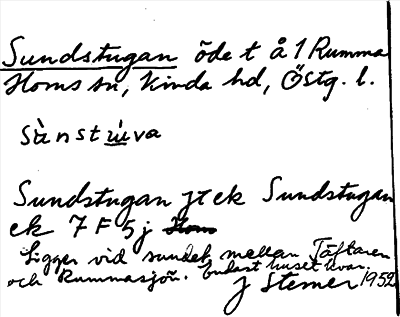 Sundstugan öde t å 1 Rumma
Horns sn, Kinda hd, Östg. l.
sùnstúva
Sundstugan jr ek Sundstugan
ek 7 F 5 j
Ligger vid sundet mellan Täftaren
och Rummasjön. Endast huset kvar.
J Sterner 1952